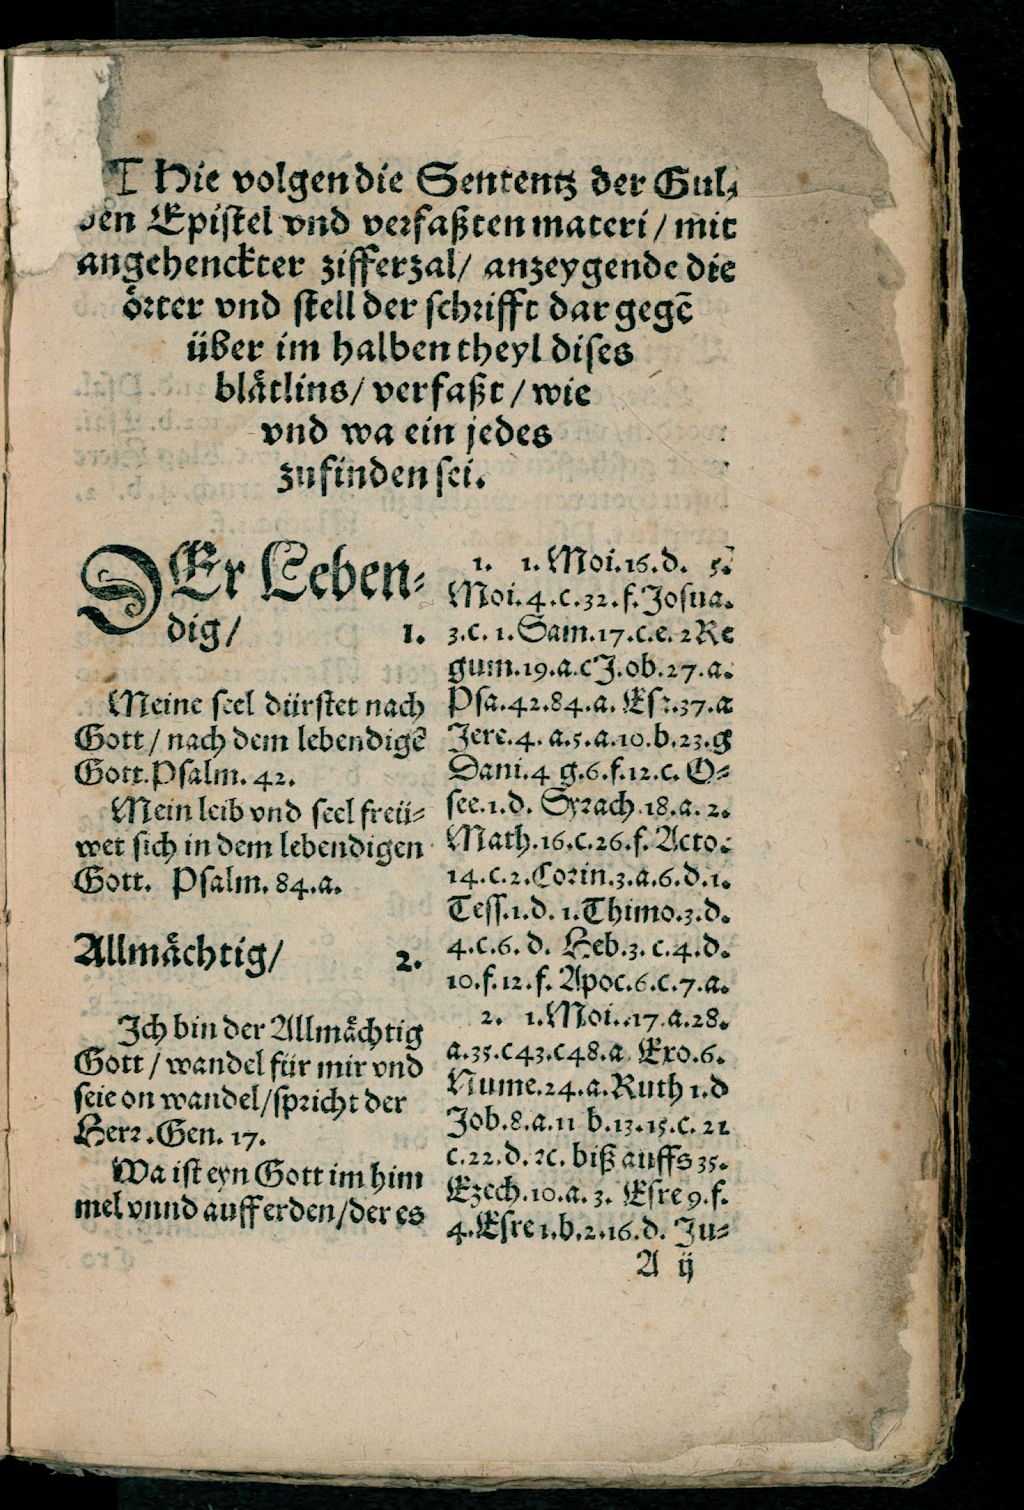 Hie volgen die Sententz der Gul⸗
den Epistel vnd verfaßten materi / mit
angehenckter zifferzal / anzeygende die
oͤrter vnd stell der schrifft dar gegē
über im halben theyl dises
blaͤtlins / verfaßt / wie
vnd wa ein jedes
zufinden sei.
DEr Leben⸗
dig / 1.
Meine seel dürstet nach
Gott / nach dem lebendigē
Gott. Psalm. 42.
Mein leib vnd seel freü⸗
wet sich in dem lebendigen
Gott. Psalm. 84.a.
Allmaͤchtig / 2.
Ich bin der Allmaͤchtig
Gott / wandel für mir vnd
seie on wandel / spricht der
Herr. Gen. 17.
Wa ist eyn Gott im him
mel vnnd auff erden / der es
1. 1. Moi. 16. d. 5.
Moi. 4. c. 32. f. Josua.
3. c. 1. Sam. 17. c. e. 2 Re
gum. 19. a. c J. ob. 27. a.
Psa. 42. 84. a. Esr. 37. a
Jere. 4. a. 5. a. 10. b. 23. g
Dani. 4 g. 6. f. 12. c. O⸗
see. 1. d. Syrach. 18. a. 2.
Math. 16. c. 26. f. Acto.
14. c. 2. Corin. 3. a. 6. d. 1.
Tess. 1. d. 1. Thimo. 3. d.
4. c. 6. d. Heb. 3. c. 4. d.
10. f. 12. f. Apoc. 6. c. 7. a.
2. 1. Moi. 17. a. 28.
a. 35. c 43. c 48. a Exo. 6.
Nume. 24. a. Ruth 1. d
Job. 8. a. 11 b. 13. 15. c. 21
c. 22. d. ꝛc. biß auffs 35.
Ezech. 10. a. 3. Esre 9. f.
4. Esre 1. b. 2. 16. d. Ju⸗
A ij